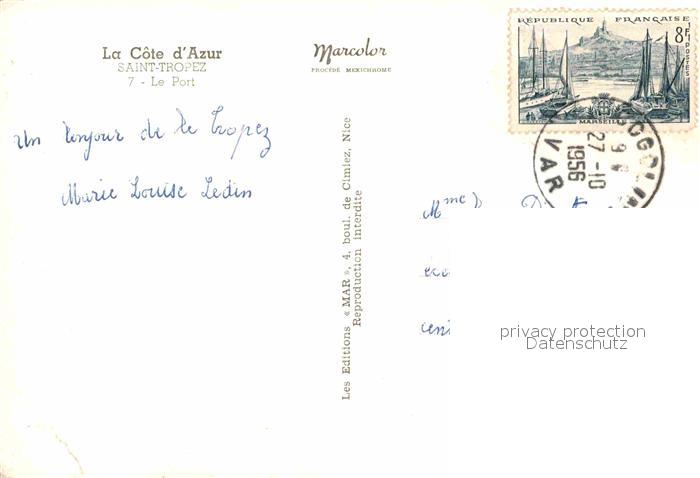 La Côte d'Azur
SAINT-TROPEZ
7 - Le Port
Marcolor
PROCÉDÉ MEXICHROME
RÉPUBLIQUE FRANÇAISE
8F
POSTES
MARSEILLE
COGOLIN
27-10
1956
VAR
Un bonjour de St Tropez
Marie Louise Ledin
Les Editions « MAR », 4, boul. de Cimiez, Nice
Reproduction interdite
Mme
privacy protection
Datenschutz